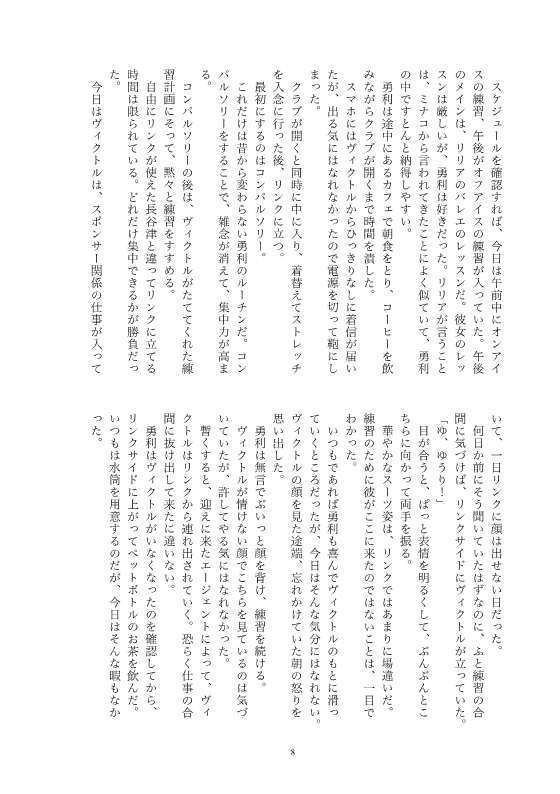 スケジュールを確認すれば、今日は午前中にオンアイ
スの練習、午後がオフアイスの練習が入っていた。午後
のメインは、リリアのバレエのレッスンだ。彼女のレッ
スンは厳しいが、勇利は好きだった。リリアが言うこと
は、ミナコから言われてきたことによく似ていて、勇利
の中ですとんと納得しやすい。
　勇利は途中にあるカフェで朝食をとり、コーヒーを飲
みながらクラブが開くまで時間を潰した。
　スマホにはヴィクトルからひっきりなしに着信が届い
たが、出る気にはなれなかったので電源を切って鞄にし
まった。
　クラブが開くと同時に中に入り、着替えてストレッチ
を入念に行った後、リンクに立つ。
　最初にするのはコンパルソリー。
　これだけは昔から変わらない勇利のルーチンだ。コン
パルソリーをすることで、雑念が消えて、集中力が高ま
る。
　コンパルソリーの後は、ヴィクトルがたててくれた練
習計画にそって、黙々と練習をすすめる。
　自由にリンクが使えた長谷津と違ってリンクに立てる
時間は限られている。どれだけ集中できるかが勝負だっ
た。
　今日はヴィクトルは、スポンサー関係の仕事が入って
いて、一日リンクに顔は出せない日だった。
　何日か前にそう聞いていたはずなのに、ふと練習の合
間に気づけば、リンクサイドにヴィクトルが立っていた。
「ゆ、ゆうり！」
　目が合うと、ぱっと表情を明るくして、ぶんぶんとこ
ちらに向かって両手を振る。
　華やかなスーツ姿は、リンクではあまりに場違いだ。
練習のために彼がここに来たのではないことは、一目で
わかった。
　いつもであれば勇利も喜んでヴィクトルのもとに滑っ
ていくところだったが、今日はそんな気分にはなれない。
ヴィクトルの顔を見た途端、忘れかけていた朝の怒りを
思い出した。
　勇利は無言でぷいっと顔を背け、練習を続ける。
　ヴィクトルが情けない顔でこちらを見ているのは気づ
いていたが、許してやる気にはなれなかった。
　暫くすると、迎えに来たエージェントによって、ヴィ
クトルはリンクから連れ出されていく。恐らく仕事の合
間に抜け出して来たに違いない。
　勇利はヴィクトルがいなくなったのを確認してから、
リンクサイドに上がってペットボトルのお茶を飲んだ。
いつもは水筒を用意するのだが、今日はそんな暇もなか
った。
8